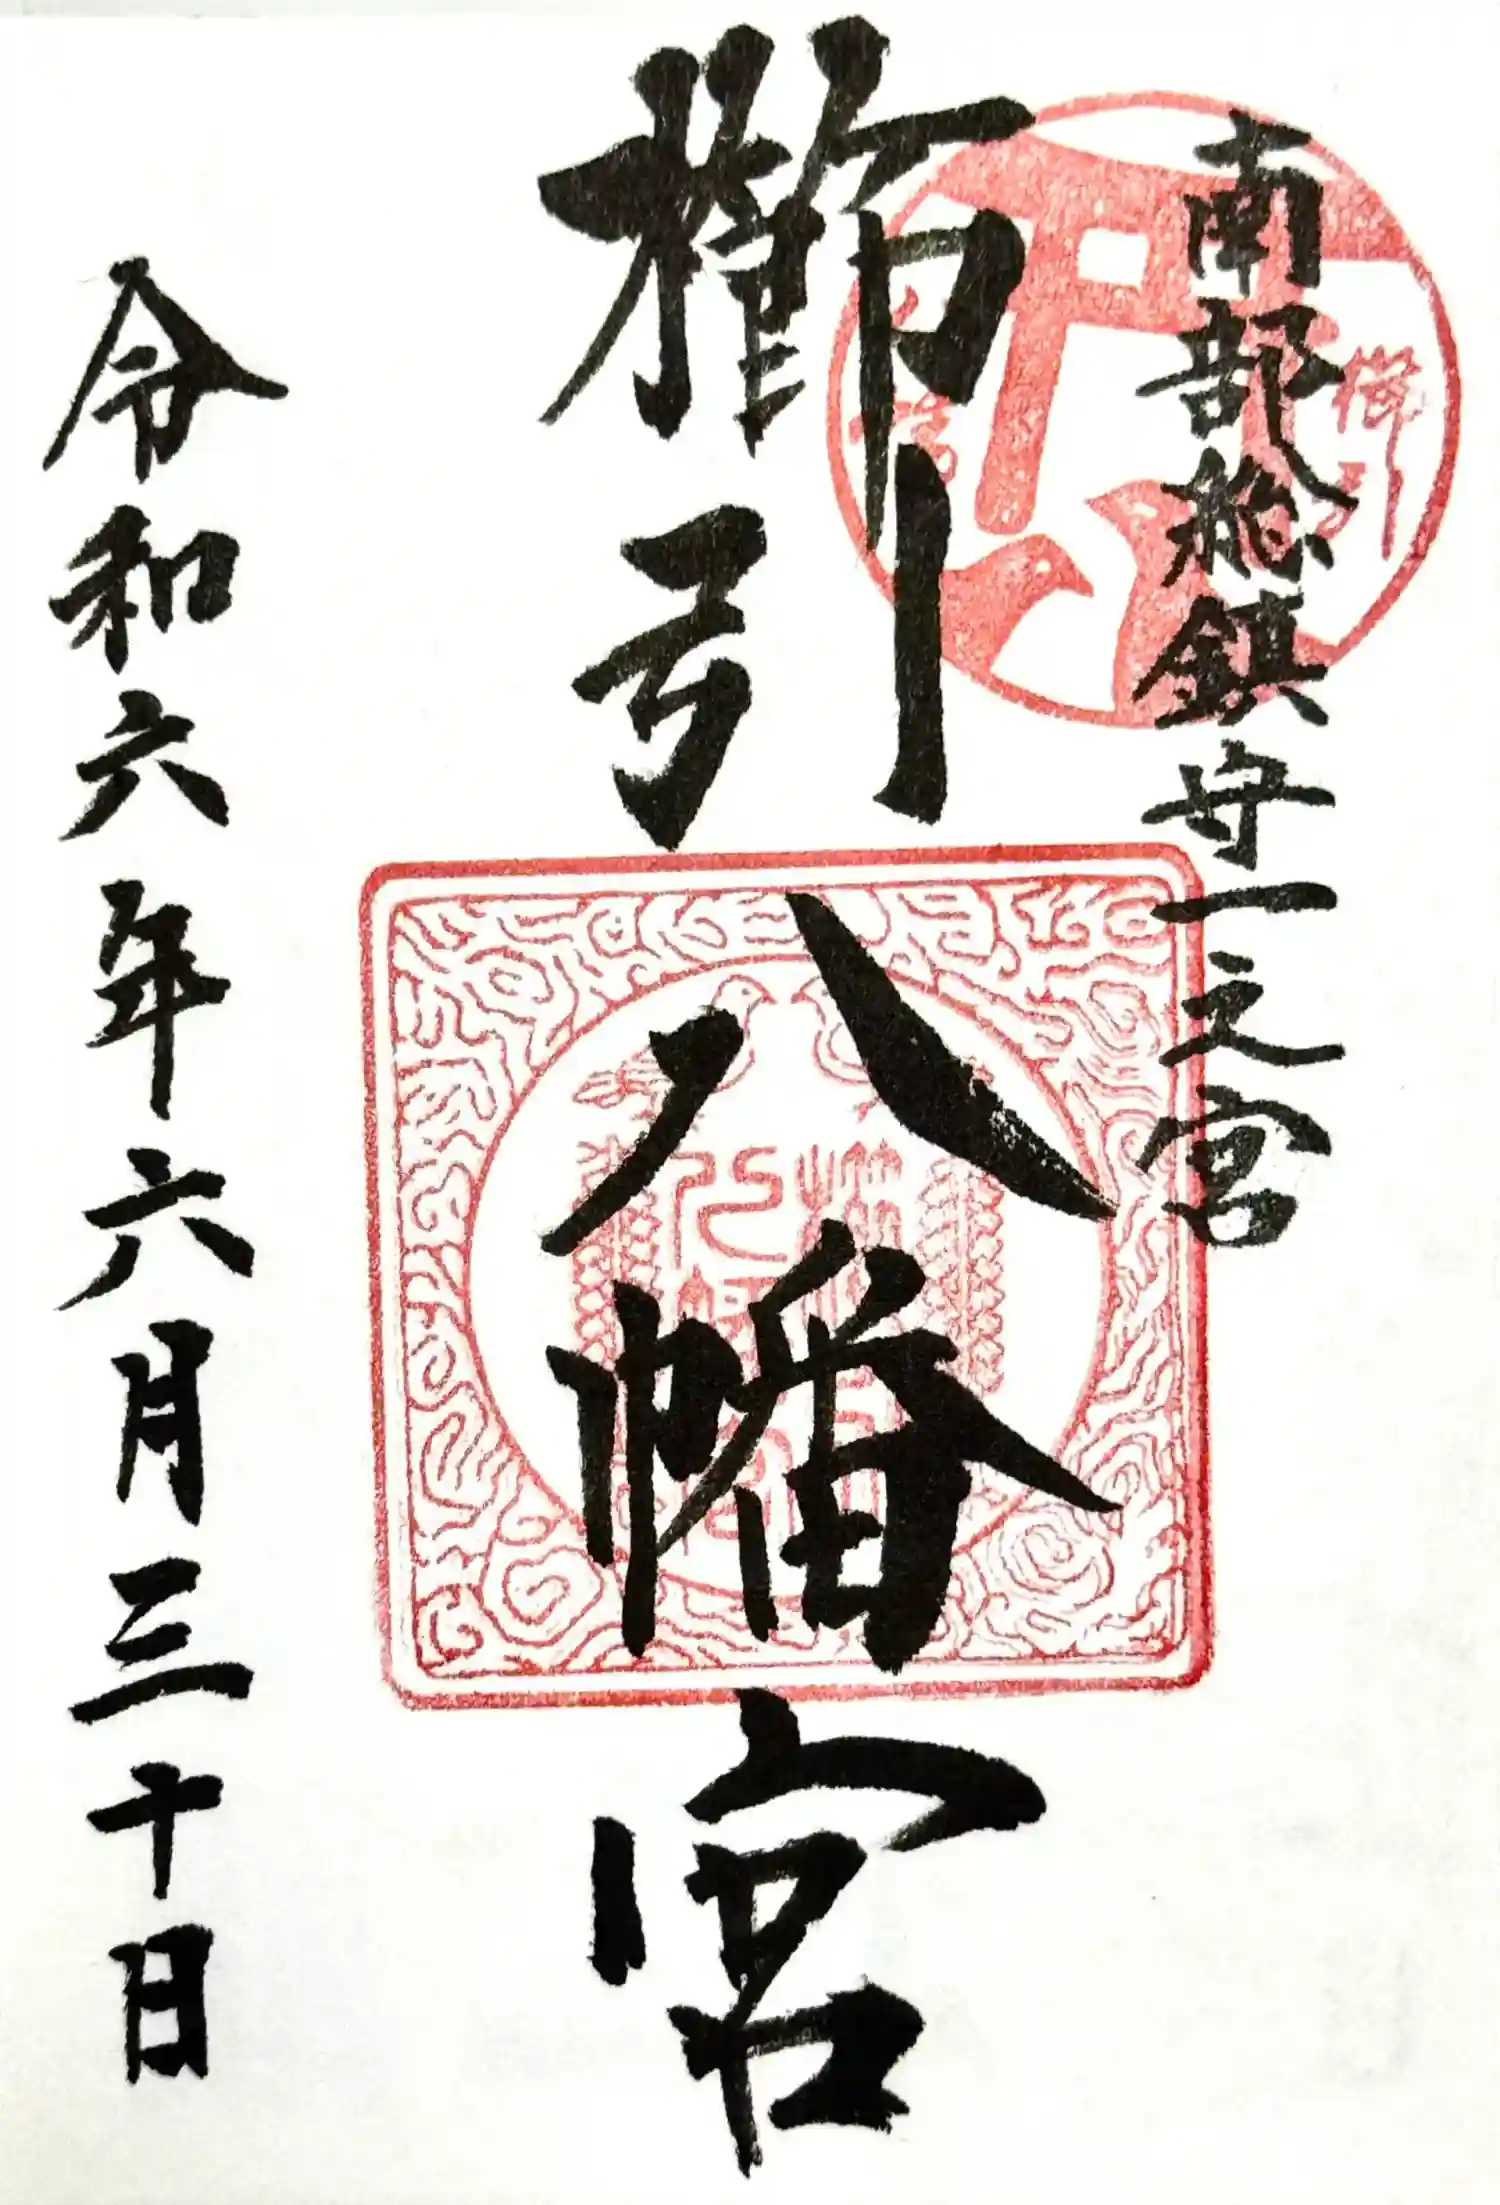 南部総鎮守一之宮
櫛引八幡宮
令和六年六月三十日
櫛引